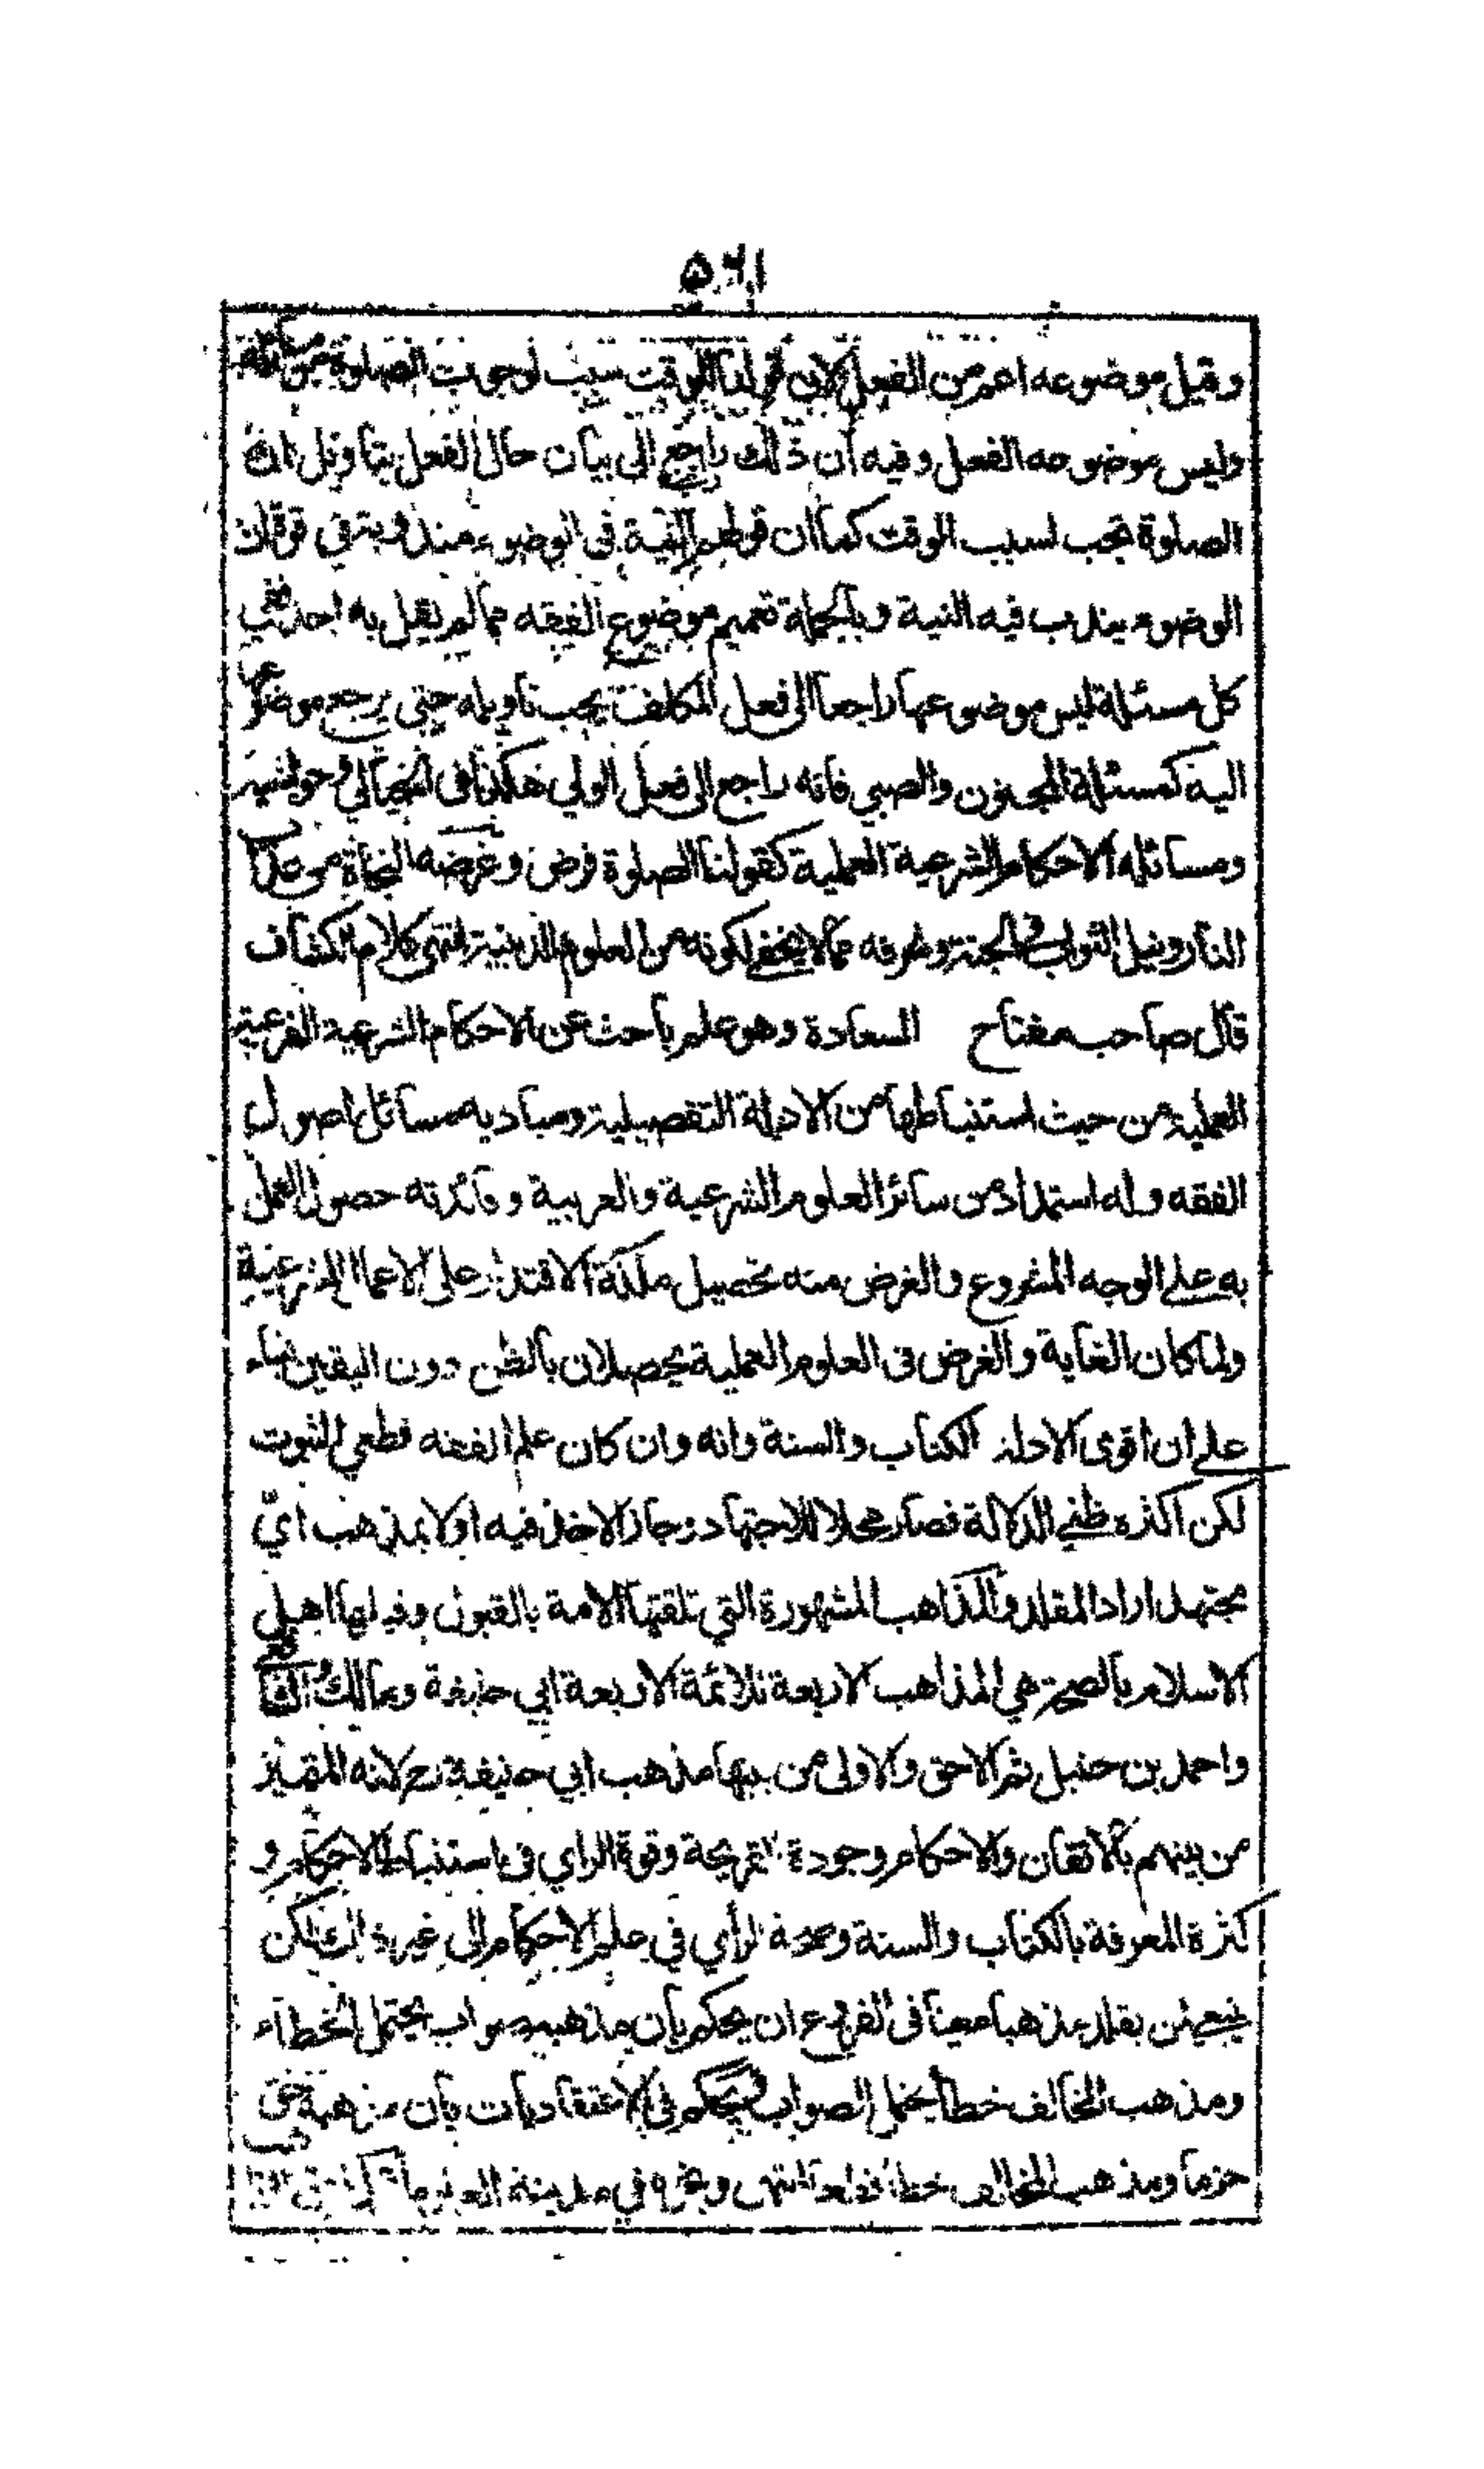 ۵۶۱
وقيل موضوعه اعم من الفعل لان قولنا الوقت سبب لوجوب الصلوة من مسائله
وليس موضوعه الفعل وفيه ان ذلك راجع الى بيان حال الفعل بتاويل ان
الصلوة تجب لسبب الوقت كما ان قولهم النية فى الوضوء مندوبة فى قوة ان
الوضوء يندب فيه النية وبالجملة تعميم موضوع الفقه مما لم يقل به احد ففي
كل مسئلة ليس موضوعها راجعا الى فعل المكلف يجب تاويله حتى يرجع موضوعها
اليه كمسئلة المجنون والصبي فانه راجع الى فعل الولي هكذا فى الخيالي وحواشيه
ومسائله الاحكام الشرعية العملية كقولنا الصلوة فرض وغرضه النجاة من عذاب
النار ونيل الثواب فى الجنة وشرفه مما لا يخفى لكونه من العلوم الدينية انتهى كلام الكشاف
قال صاحب مفتاح السعادة وهو علم باحث عن الاحكام الشرعية الفرعية
العملية من حيث استنباطها من الادلة التفصيلية ومباديه مسائل اصول
الفقه وله استمداد من سائر العلوم الشرعية والعربية وفائدته حصول العمل
به على الوجه المشروع والغرض منه تحصيل ملكة الاقتدار على الاعمال الشرعية
ولما كان الغاية والغرض فى العلوم العملية يحصلان بالظن دون اليقين بناء
على ان اقوى الادلة الكتاب والسنة وانه وان كان علم الفقه قطعي الثبوت
لكن اكثره ظني الدلالة فصار محلا للاجتهاد وجاز الاخذ فيه اولا بمذهب اي
مجتهد اراد المقلد والمذاهب المشهورة التي تلقتها الامة بالقبول وقبلها اهل
الاسلام بالصحة هي المذاهب الاربعة للائمة الاربعة ابي حنيفة ومالك والشافعي
واحمد بن حنبل ثم الاحق والاولى من بينها مذهب ابي حنيفة رح لانه المتميز
من بينهم بالاتقان والاحكام وجودة القريحة وقوة الراي فى استنباط الاحكام و
كثرة المعرفة بالكتاب والسنة وصحة الرأي في علم الاحكام الى غير ذلك لكن
ينبغي لمن يقلد مذهبا معينا فى الفروع ان يحكم بان مذهبه صواب يحتمل الخطاء
ومذهب المخالف خطأ يحتمل الصواب ويحكم فى الاعتقاديات بان مذهبه حق
جزما ومذهب المخالف خطأ قطعا انتهى ونحوه في مدينة العلوم